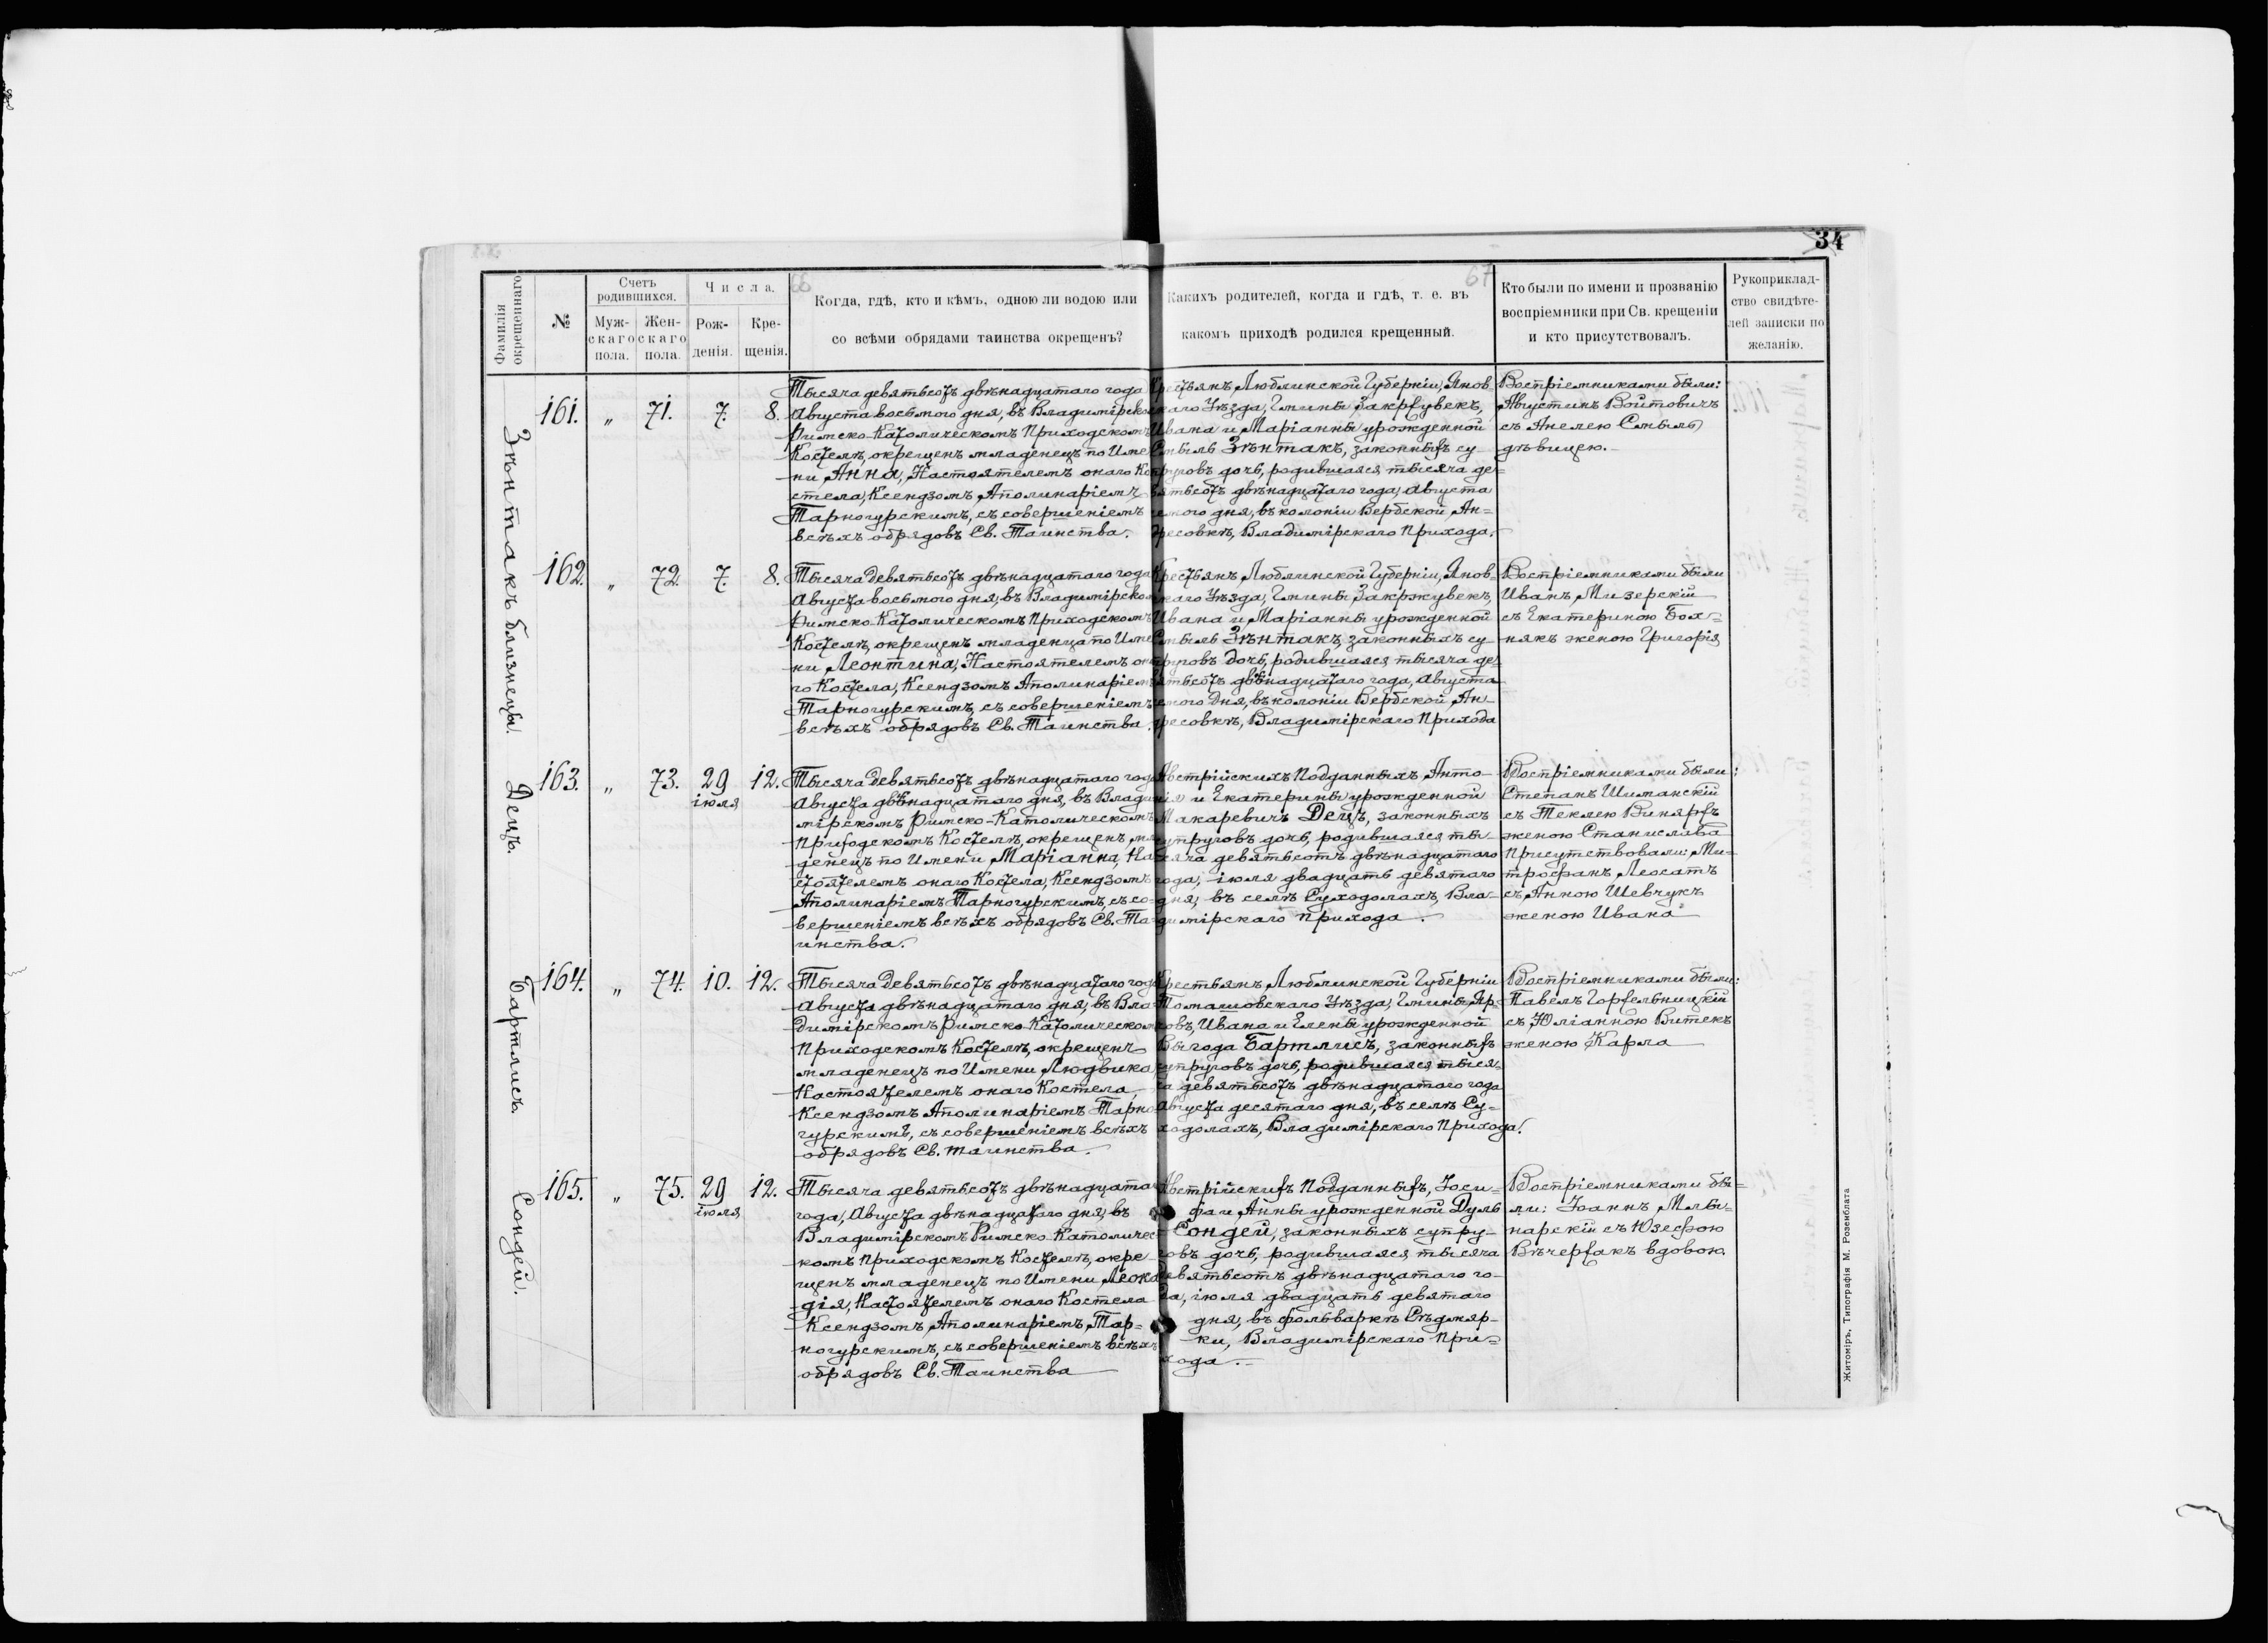 34
66
67
Фамилія окрещеннаго
№
Счетъ родившихся.
Мужскаго пола.
Женскаго пола.
Числа.
Рожденія.
Крещенія.
Когда, гдѣ, кто и кѣмъ, одною ли водою или
со всѣми обрядами таинства окрещенъ?
Какихъ родителей, когда и гдѣ, т. е. въ
какомъ приходѣ родился крещенный.
Кто были по имени и прозванію
воспріемники при Св. крещеніи
и кто присутствовалъ.
Рукоприклад-
ство свидѣте-
лей записки по
желанію.
Зѣнтакъ близнецы.
161. „ 71. 7. 8.
Тысяча девятьсотъ двѣнадцатаго года
Августа восьмого дня, въ Владимірско
Римско-Католическомъ Приходскомъ
Костелѣ, окрещенъ младенецъ по Име
ни Анна, Настоятелемъ онаго Ко
стела, Ксендзомъ Аполинаріемъ
Тарногурскимъ, съ совершеніемъ
всѣхъ обрядовъ Св. Таинства.
Крестьянъ Люблинской Губерніи, Янов
скаго Уѣзда, Гмины Закржувекъ,
Ивана и Маріанны урожденной
Смыль Зѣнтакъ, законныхъ су
пруговъ дочь, родившаяся тысяча де=
вятьсотъ двѣнадцатаго года, Августа
семого дня, въ колоніи Вербской, Ан=
дресовкѣ, Владимірскаго Прихода.
Воспріемниками были:
Августинъ Войтовичъ
съ Анелею Смыль
дѣвицею.
162. „ 72 7. 8.
Тысяча девятьсотъ двѣнадцатаго года
Августа восьмого дня, въ Владимірском
Римско-Католическомъ Приходскомъ
Костелѣ, окрещенъ младенца по Име
ни Леонтина, Настоятелемъ она
го Костела, Ксендзомъ Аполинаріемъ
Тарногурскимъ, съ совершеніемъ
всѣхъ обрядовъ Св. Таинства.
Крестьянъ Люблинской Губерніи, Янов=
скаго Уѣзда, Гмины Закржувекъ,
Ивана и Маріанны урожденной
Смыль Зѣнтакъ, законныхъ су-
пруговъ дочь, родившаяся тысяча де=
вятьсотъ двѣнадцатаго года, Августа
семого дня, въ колоніи Вербской, Ан-
дресовкѣ, Владимірскаго Прихода
Воспріемниками были
Иванъ Мизерскій
съ Екатериною Бох=
някъ женою Григорія
Децъ.
163. „ 73. 29 іюля 12.
Тысяча девятьсотъ двѣнадцатаго года
Августа двѣнадцатаго дня, въ Влади
мірскомъ Римско-Католическомъ
Приходскомъ Костелѣ, окрещенъ мла
денецъ по Имени Маріанна, На
стоятелемъ онаго Костела, Ксендзомъ
Аполинаріемъ Тарногурскимъ, съ со-
вершеніемъ всѣхъ обрядовъ Св. Та-
инства.
Австрійскихъ Подданныхъ, Анто-
нія и Екатерины урожденной
Макаревичъ Децъ, законныхъ
супруговъ дочь, родившаяся ты-
сяча девятьсотъ двѣнадцатаго
года, іюля двадцать девятаго
дня, въ селѣ Суходолахъ, Вла-
димірскаго прихода.
Воспріемниками были:
Степанъ Шиманскій
съ Теклею Винярхъ
женою Станислава
Присутствовали: Ми=
трофанъ Леосатъ
съ Анною Шевчукъ
женою Ивана
Бартлисъ.
164. „ 74. 10. 12.
Тысяча девятьсотъ двѣнадцатаго года
Августа двѣнадцатаго дня, въ Вла-
димірскомъ Римско-Католическом
Приходскомъ Костелѣ, окрещенъ
младенецъ по Имени Людвика,
Настоятелемъ онаго Костела,
Ксендзомъ Аполинаріемъ Тарно
гурскимъ, съ совершеніемъ всѣхъ
обрядовъ Св. таинства.
Крестьянъ Люблинской Губерніи
Томашовскаго Уѣзда, Гмины Яр-
ковъ, Ивана и Елены урожденной
Выгода Бартлисъ, законныхъ
супруговъ дочь, родившаяся тыся-
ча девятьсотъ двѣнадцатаго года
Августа десятаго дня, въ селѣ Су=
ходолахъ, Владимірскаго Прихода.
Воспріемниками были:
Павелъ Горжельницкій
съ Юліанною Витекъ
женою Карла
Сондей.
165. „ 75. 29 іюля 12.
Тысяча девятьсотъ двѣнадцата
года, Августа двѣнадцатаго дня, въ
Владимірскомъ Римско-Католичес=
комъ Приходскомъ Костелѣ, окре
щенъ младенецъ по Имени Леока
дія, Настоятелемъ онаго Костела
Ксендзомъ Аполинаріемъ Тар=
ногурскимъ, съ совершеніемъ всѣхъ
обрядовъ Св. Таинства
Австрійскихъ Подданныхъ, Іоси=
фа и Анны урожденной Дуль
Сондей, законныхъ супру-
говъ дочь, родившаяся тысяча
девятьсотъ двѣнадцатаго го-
да, іюля двадцать девятаго
дня, въ фольваркѣ Сѣдмяр-
ки, Владимірскаго При=
хода.
Воспріемниками бы=
ли: Іоаннъ Млы-
нарскій съ Юзефою
Вѣчержакъ вдовою.
Житоміръ, Типографія М. Розенблата